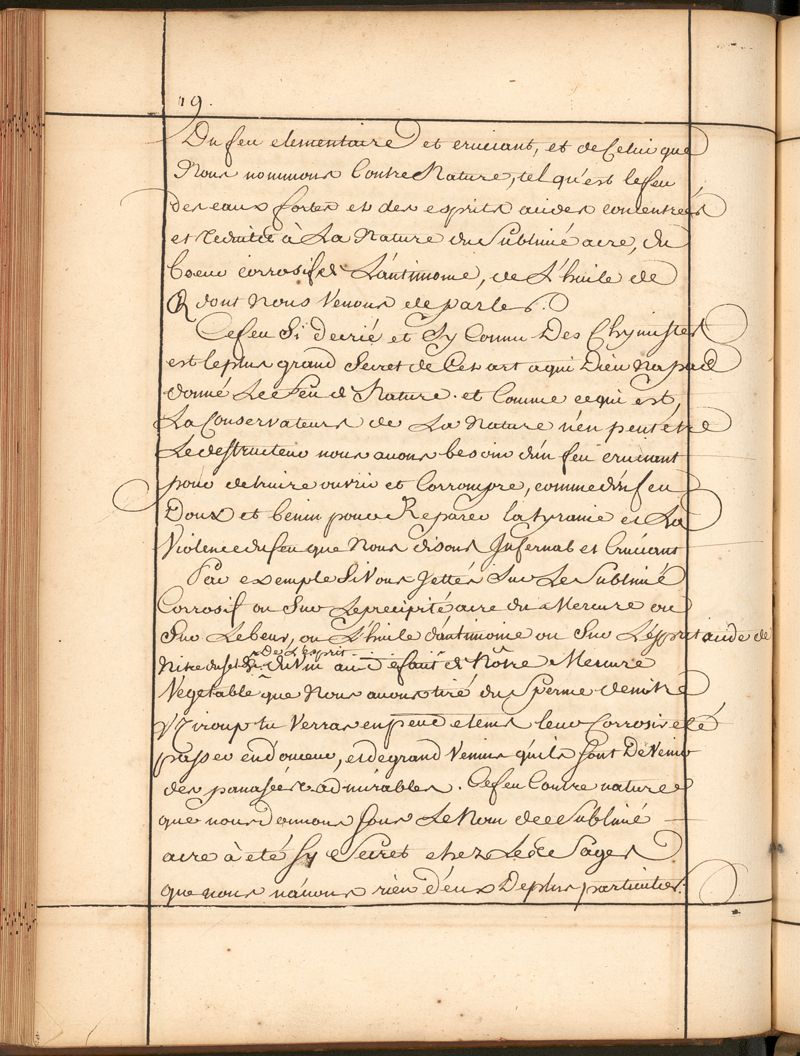 19.
Du feu elementaire et cruciant, et de Celui que
Nous nommons Contre Nature, tel qu'est le feu
des eaux fortes et des esprits acides concentrées
et reduitte à La Nature du Sublimé acre, du
beure corrosif de L'antimoine, de L'huile de
dont Nous Venons de parler.
Ce feu Si decrié et Sy Connu Des Chymistes
est le plus grand Secret de Cet art a qui Dieu Na pas
donné Le Feu de Nature. et Comme ce qui est
La Conservateurs de La Nature n'en peut être
Le destructeur nous avons besoin d'un feu cruciant
pour detruire ouvrir et Corrompre, comme d'un feu
Doux et benin pour Reparer la tyranie et La
Violence du feu que Nous disons Infernal et Cruciant
Par exemple Si Vous Jettés Sur Le Sublimé
Corrosif ou Sur Le precipité acre du Mercure ou
Sur Le beure, ou L'huile d'antimoine ou Sur L'esprit acide de
De L'esprit
Nitre du sel du Vin de Nôtre Mercure
Vegetable que Nous avons tiré du Sperme de nôtre
tu Verras en peu de tems leur Corrosiveté
passer en douceur, et de grand Venins qu'ils sont DeVenir
des panasées admirables. Ce feu Contre nature
que nous donnons Sous Le Nom de Sublimé
acre à été Sy Secret chez Les Sages
que nous n'avons rien d'eux De plus particulier.